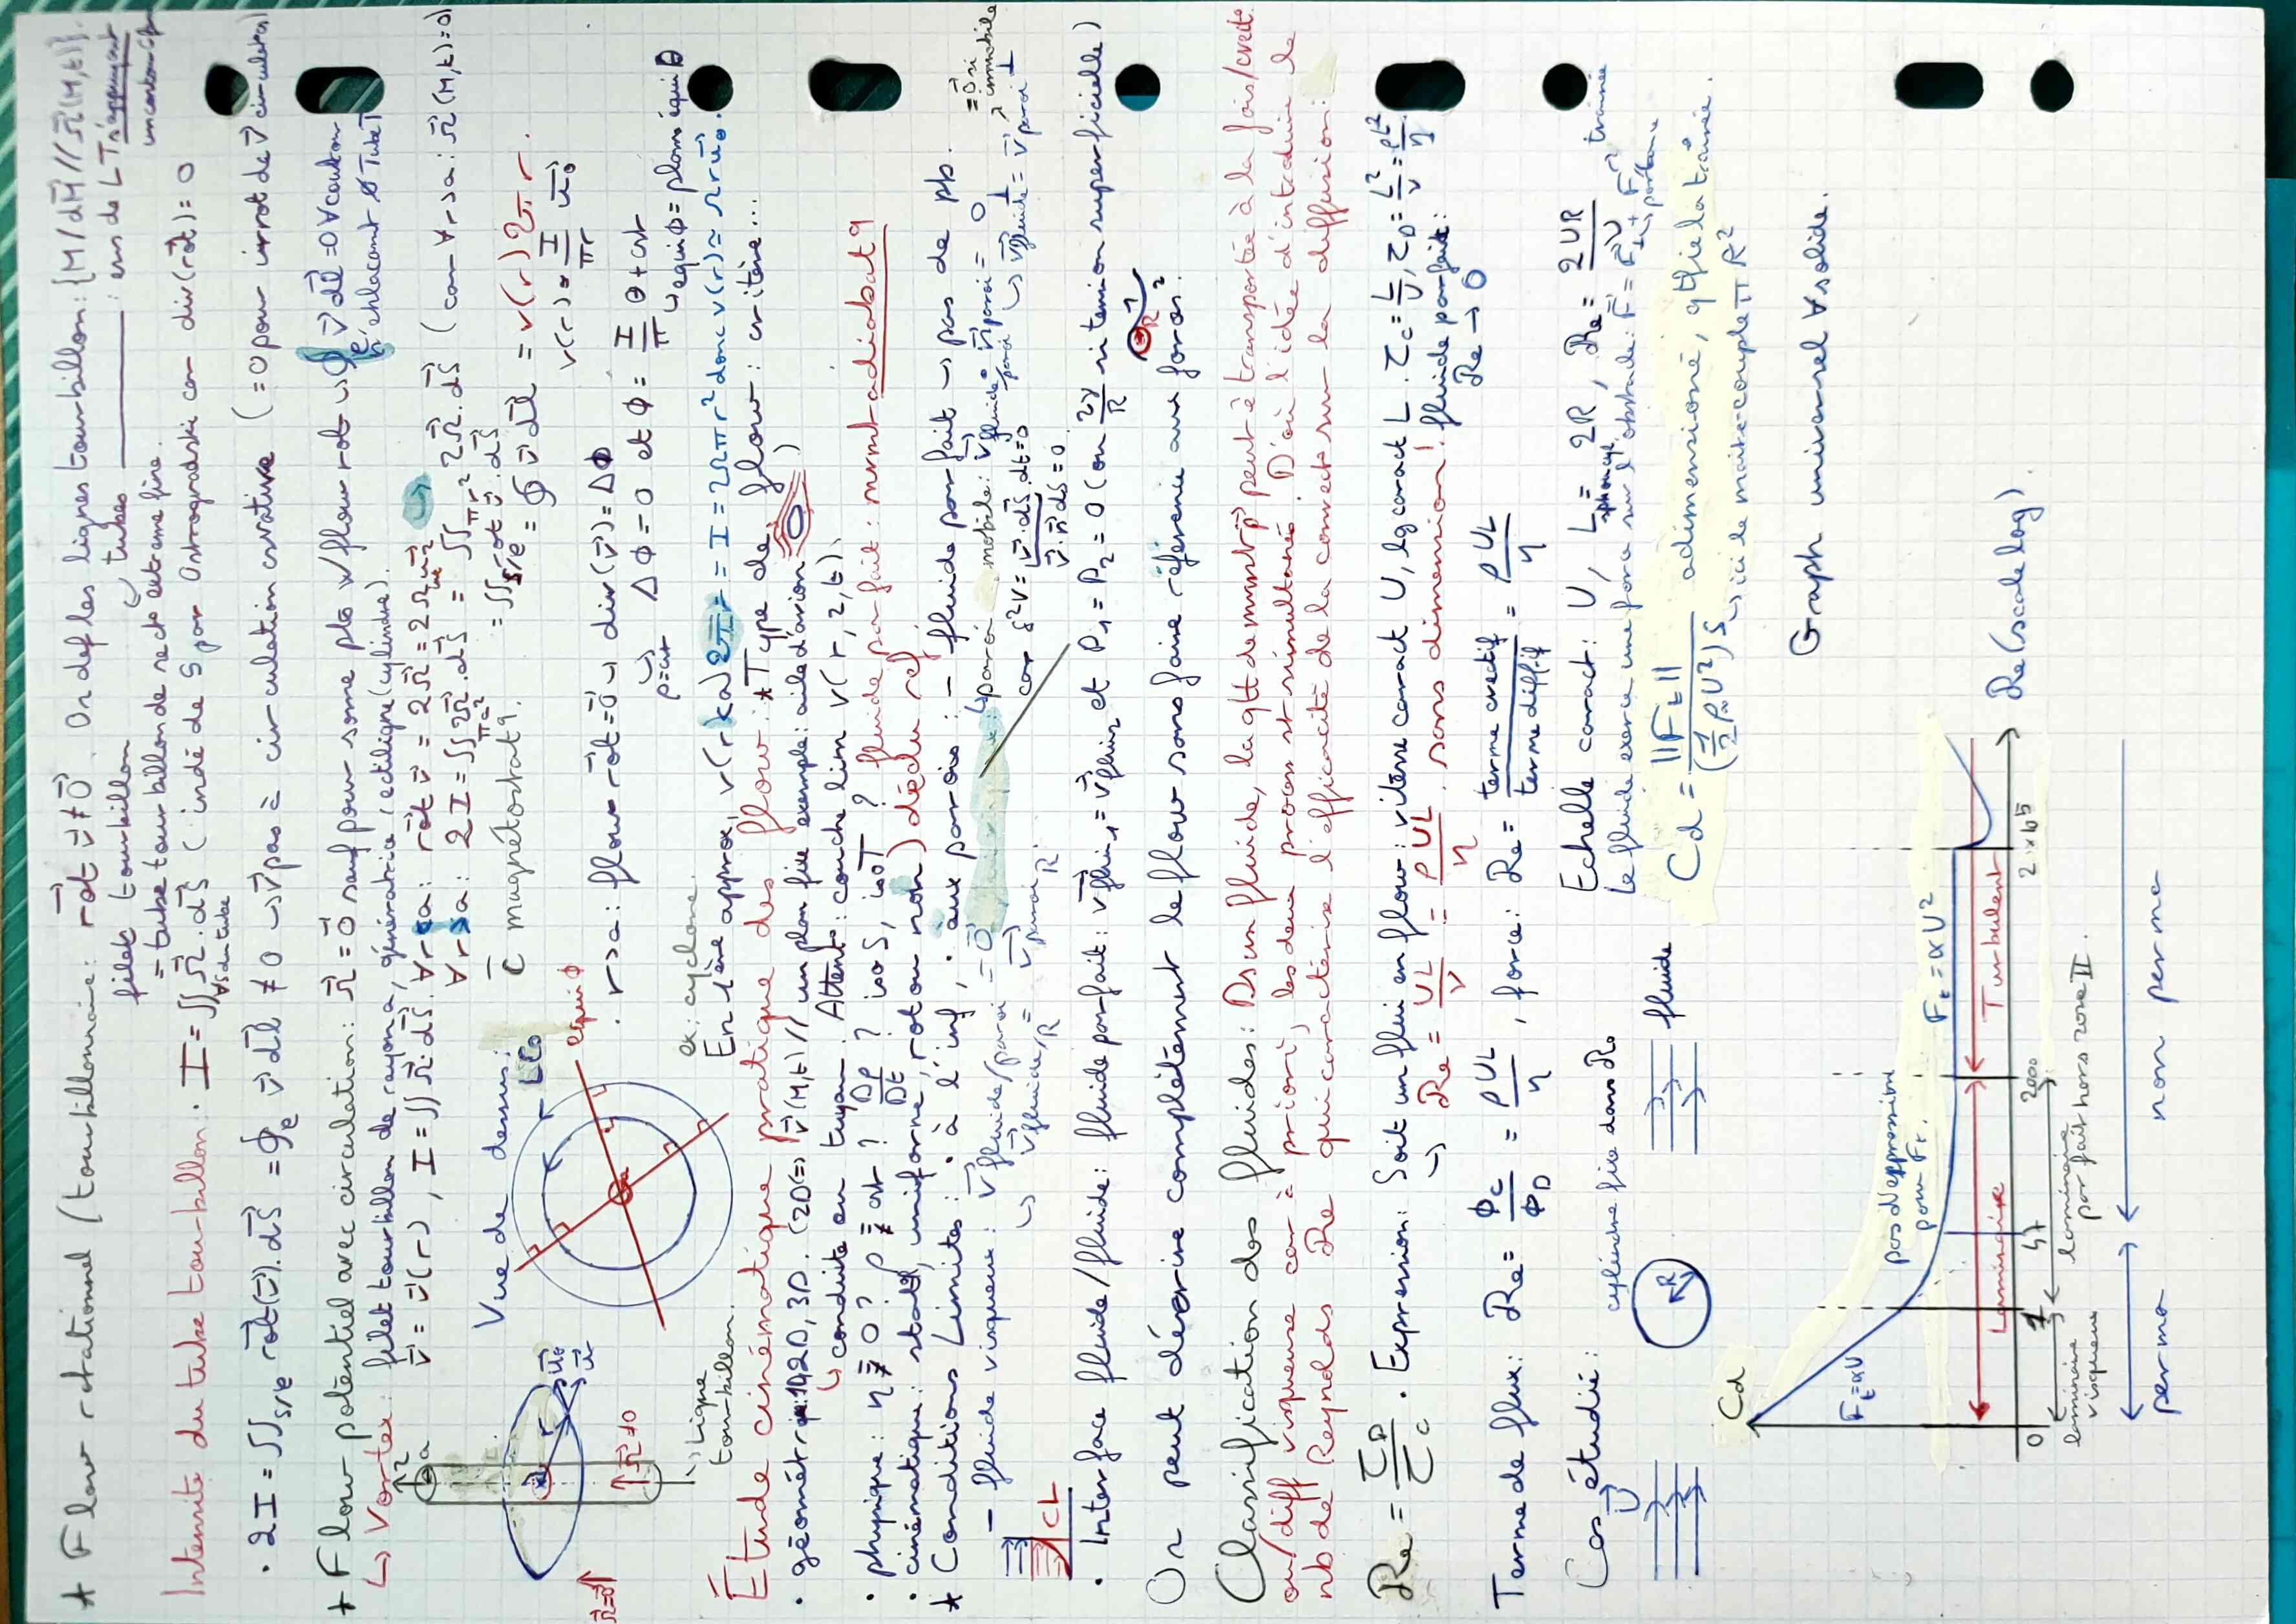 * Flow rotationnel (tourbillonnaire: rot v ≠ 0. On def les lignes tourbillon: {M/dM // Ω(M,t)}.
filets tourbillon
tubes ———— : ens de LT s'appuyant
un contour
= tube tourbillon de sect° extreme fine.
Intensité du tube tourbillon: I = ∬ Ω.dS (indé de S par Ostrogradski car div(rot) = 0
∀S du tube
• 2I = ∬S/e rot(v).dS = ∮e v dl ≠ 0 ↪ v pas à circulation conservative (= 0 pour irrot de v circulation)
* Flow potentiel avec circulation: Ω = 0 sauf pour some pts w/ flow rot ↪ ∮e v dl = 0 ∀ contour
n'enlacant Ø Tube T
↪ Vortex: filet tourbillon de rayon a, génératrice rectiligne (cylindre).
v = v(r), I = ∬ Ω.dS. ∀r<a: rot v = 2Ω = 2Ω uz
∀r>a: 2I = ∬πa² 2Ω.dS = ∬πr² 2Ω.dS (car ∀r>a: Ω(M,t) = 0)
= ∬S/e rot v.dS
= ∮ v dl = v(r) 2π r.
v(r) = I/πr uθ
c̄ magnétostat°.
Vue de dessus:
LCo
equi ϕ
• r>a: flow rot = 0 ↪ div(v) = Δϕ
ρ=cst Δϕ = 0 et ϕ = I/π θ + cst
↪ equiϕ = plan équi θ
ex: cyclone.
En 1ère approx, v(r<a) 2πr = I = 2Ωπr² donc v(r) = Ω r uθ.
Ligne
tourbillon.
Ω=0
Ω≠0
Etude cinématique pratique des flow: * Type de flow: critère...
• géométrq: 1D, 2D, 3D. (2D ⇔ v(M,t) // un plan fixe exemple: aile d'avion)
↪ conduite en tuyau. Attent°: couche lim v(r,z,t).
• physique: η ≠ 0? ρ = cst? Dρ/Dt? iso S, iso T? fluide parfait: mvmt adiabat°
• cinématique: stat°, uniforme, rot ou non) dédu ref
* Conditions Limites: • à l'inf, • aux parois: – fluide parfait ↪ pas de pb.
↪ paroi mobile: v fluide/paroi . n paroi = 0
– fluide visqueux: v fluide/paroi = 0
↪ v fluide/R = v paroi/R.
car δ²V = v.dS.dt = 0
v.n dS = 0
↪ v⊥ fluide = v⊥ paroi
= 0 si
immobile
CL
• Interface fluide/fluide: fluide parfait: v flui1 = v flui2 et P1 = P2 = 0 (ou 2γ/R si tension superficielle)
On peut décrire complètement le flow sans faire référence aux forces.
Classification des fluides: Ds un fluide, la qtt de mvmt p peut ê transportée à la fois/convect°
ou/diff visqueuse car à priori, les deux process st simultanés. D'où l'idée d'introduire le
nb de Reynolds Re qui caractérise l'efficacité de la convect° sur la diffusion:
Re = τD/τC. Expression: Soit un flui en flow: vitesse caract U, lg caract L. τC = L/U, τD = L²/ν = ρL²/η.
↪ Re = UL/ν = ρUL/η. sans dimension! fluide parfait:
Re → 0
Terme de flux: Re = ϕC/ϕD = ρUL/η, force: Re = terme cvectif/terme diffif = ρUL/η
Cas étudié: cylindre fixe dans R0 Echelle caract: U, L = 2R, Re = 2UR
Le fluide exerce une force sur l'obstacle: F = Fp + Ft
↪ portance
traînée
U
R
fluide
Cd = ||Ft|| / (½ρU²)S adimensionné, qtifie la traînée.
↪ ici le maitre-couple πR²
Cd
Ft = αU
pas d'expression
pour Ft.
Ft = αU²
Graph universel ∀ solide.
Laminaire
Turbulent
0
1
47
2000
2×10⁵
Re (scale log)
laminaire
visqueux
laminaire
parfait hors zone II.
perma
non perma